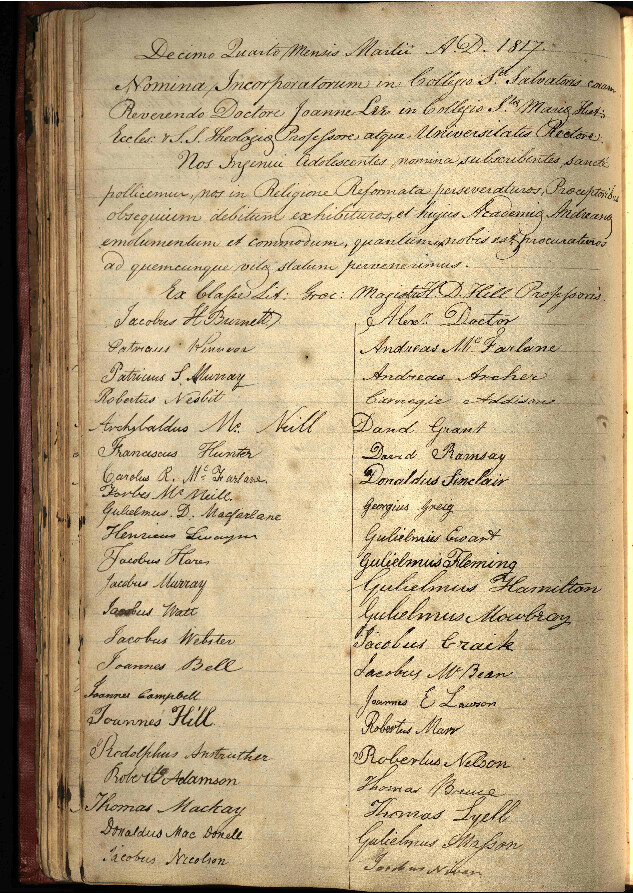 Decimo Quarto Mensis Martii A.D. 1817.
Nomina Incorporatorum in Collegio Sti Salvatoris coram
Reverendo Doctore Joanne Lee in Collegio Stae Mariae Hist:
Eccles: & S.S. Theologiae Professore atque Universitatis Rectore.
Nos Ingenui Adolescentes, nomina subscribentes sancte
pollicemur, nos in Religione Reformata perseveraturos, Praeceptoribus
obsequium debitum exhibituros, et hujus Academiae Andreanae
emolumentum et commodum, quantum nobis est, procuraturos
ad quemcunque vitae statum pervenerimus.
Ex Classe Lit: Graec: Magistri H. D. Hill Professoris.
Jacobus H Burnett
Patricius S. Murray
Robertus Nesbit
Archibaldus Mc Neill
Franciscus Hunter
Carolus R. McFarlane
Forbes McNeill
Gulielmus D. Macfarlane
Henricus
Jacobus
Jacobus Murray
Jacobus Watt
Jacobus Webster
Joannes Bell
Joannes Campbell
Joannes Hill
Rodolphus Anstruther
Robertus Adamson
Thomas Mackay
Donaldus Mac Donell
Jacobus Nicolson
Alexr. Doctor
Andreas McFarlane
Andreas Archer
Carnegie
David Grant
David Ramsay
Donaldus Sinclair
Georgius Greig
Gulielmus Ewart
Gulielmus Fleming
Gulielmus Hamilton
Gulielmus Mowbray
Jacobus Craik
Jacobus McBean
Joannes E Lawson
Robertus Marr
Robertus Nelson
Thomas Bruce
Thomas Lyell
Gulielmus